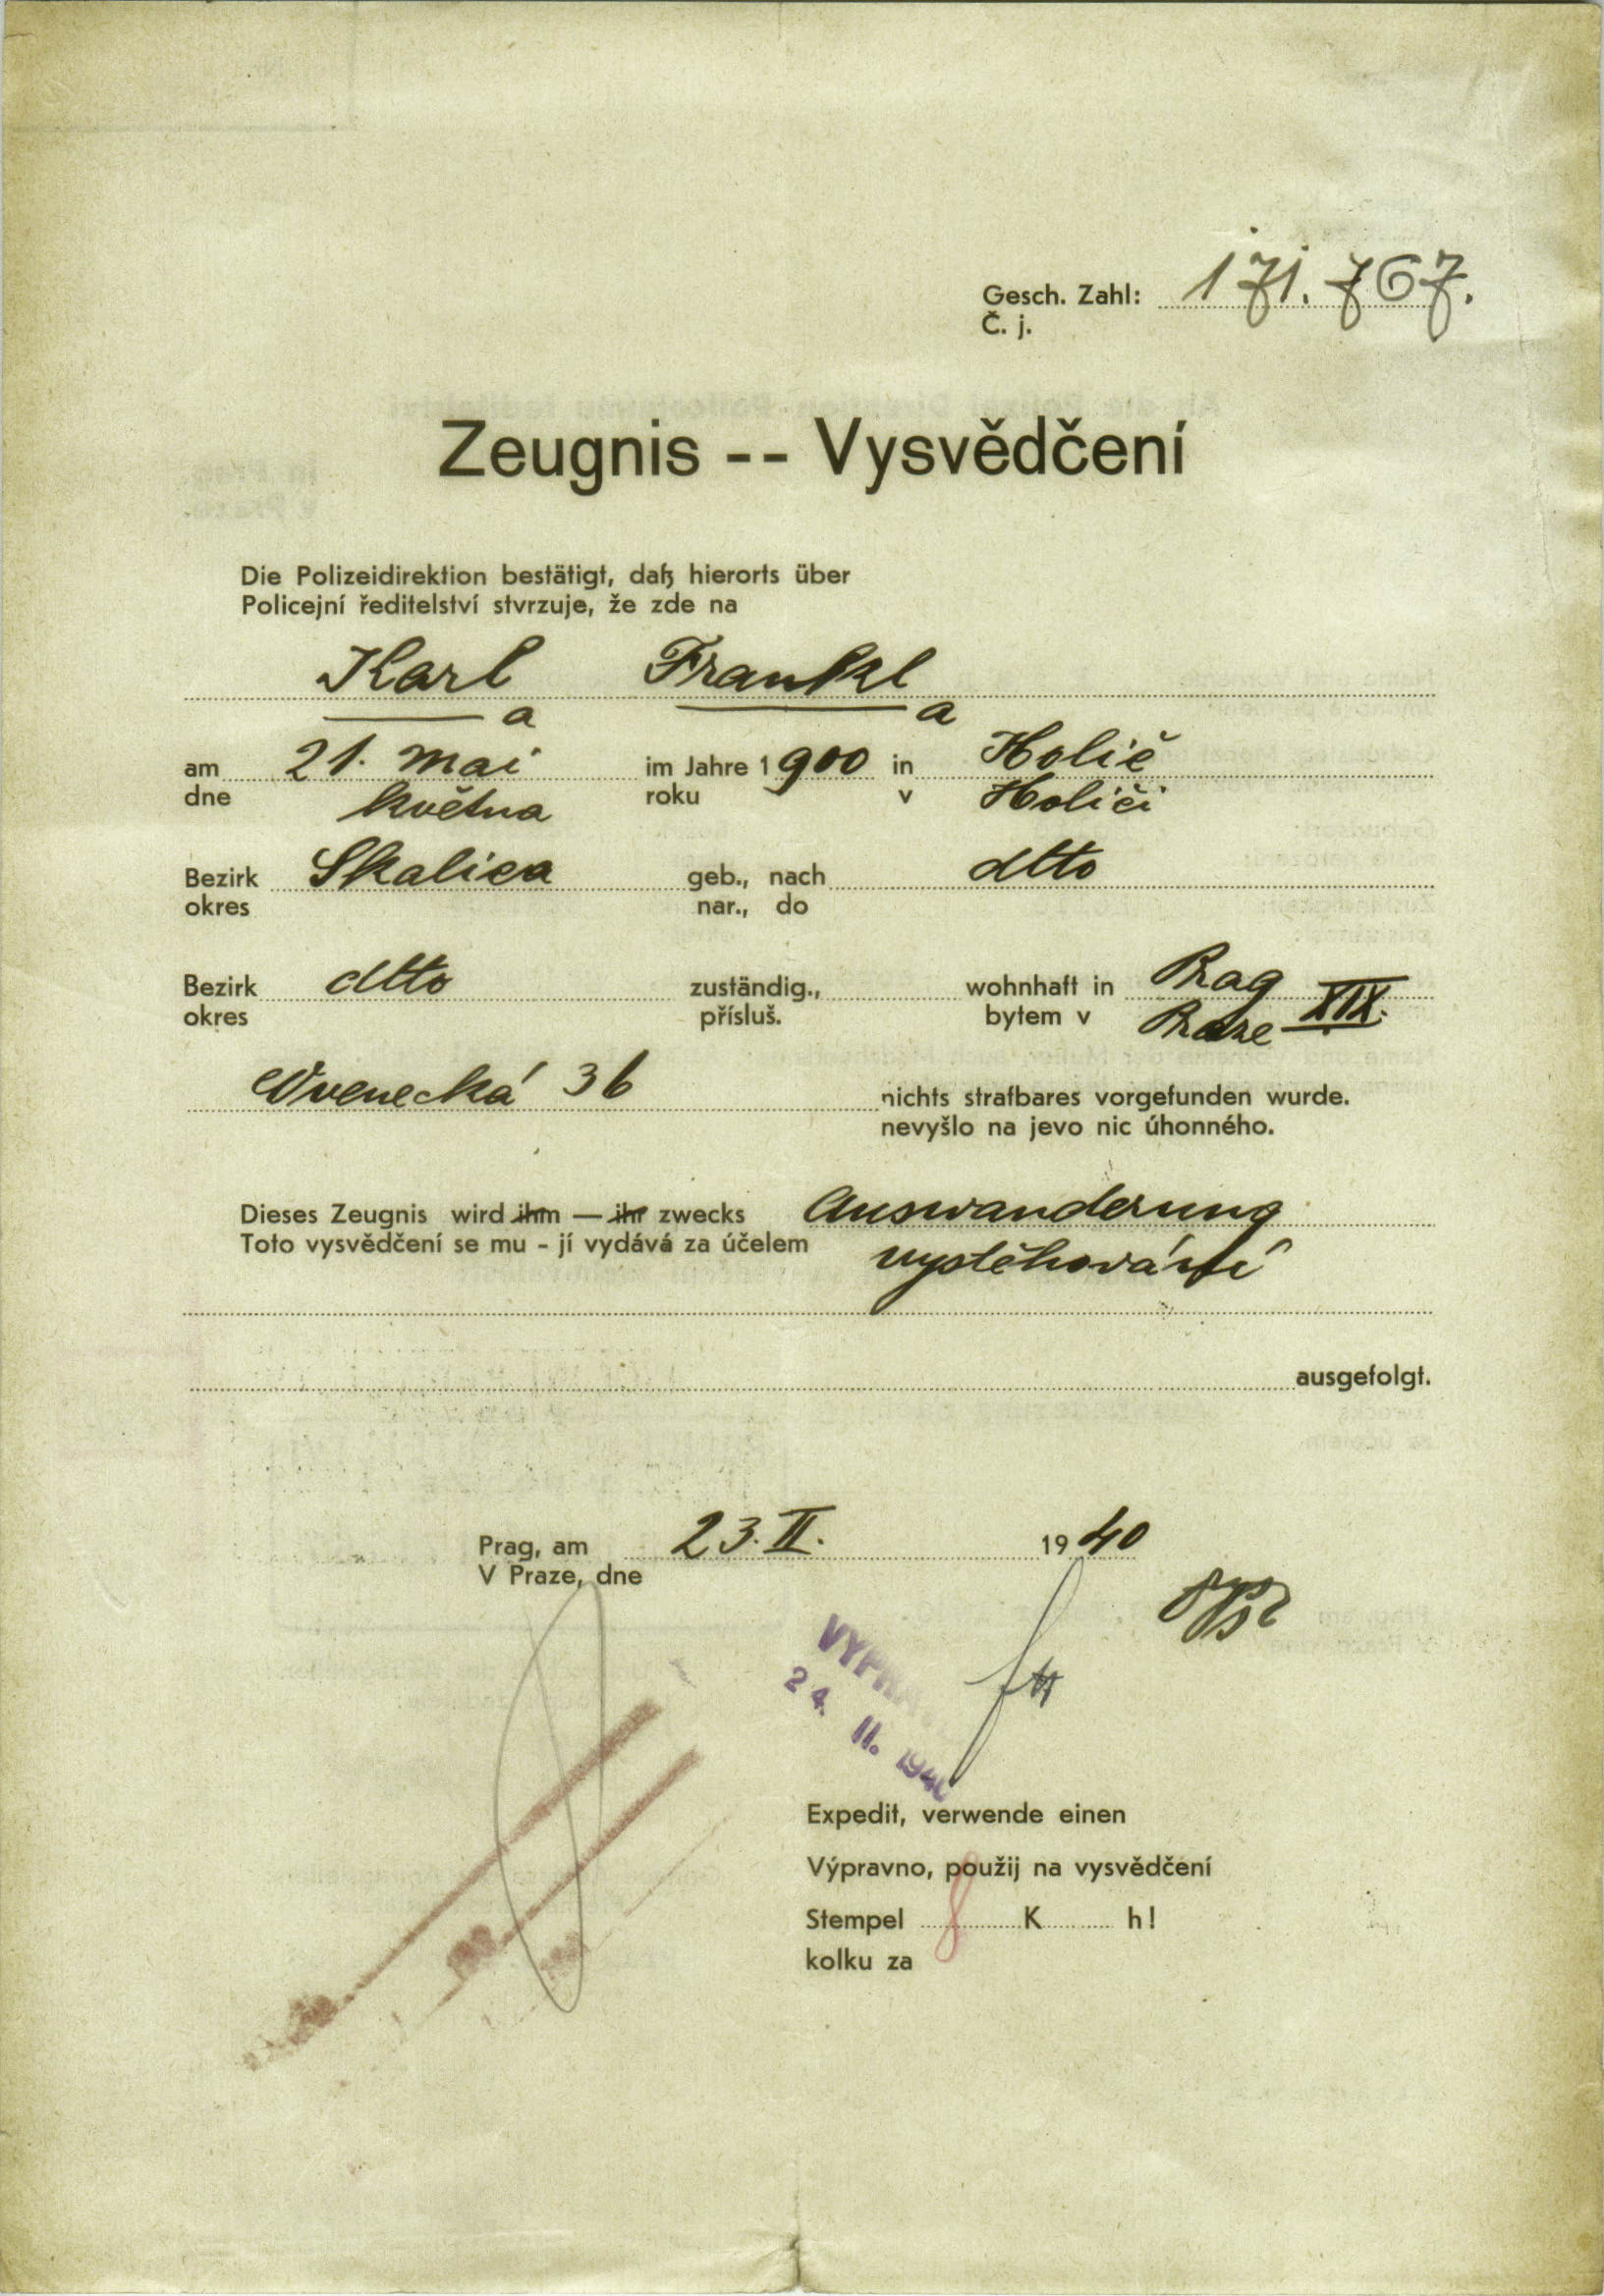 Gesch. Zahl: 171.767.
Č. j.
Zeugnis -- Vysvědčení
Die Polizeidirektion bestätigt, daß hierorts über
Policejní ředitelství stvrzuje, že zde na
Karl Frankl
a a
am 21. Mai im Jahre 1900 in Holič
dne května roku v Holiči
Bezirk Skalica geb., nach dtto
okres nar., do
Bezirk dtto zuständig., wohnhaft in Prag XIX.
okres přísluš. bytem v Praze
36 nichts strafbares vorgefunden wurde.
nevyšlo na jevo nic úhonného.
Dieses Zeugnis wird ihm — ihr zwecks Auswanderung
Toto vysvědčení se mu - jí vydává za účelem vystěhování
ausgefolgt.
Prag, am 23. II. 1940
V Praze, dne
24. II. 1940
Expedit, verwende einen
Výpravno, použij na vysvědčení
Stempel 8 K h!
kolku za